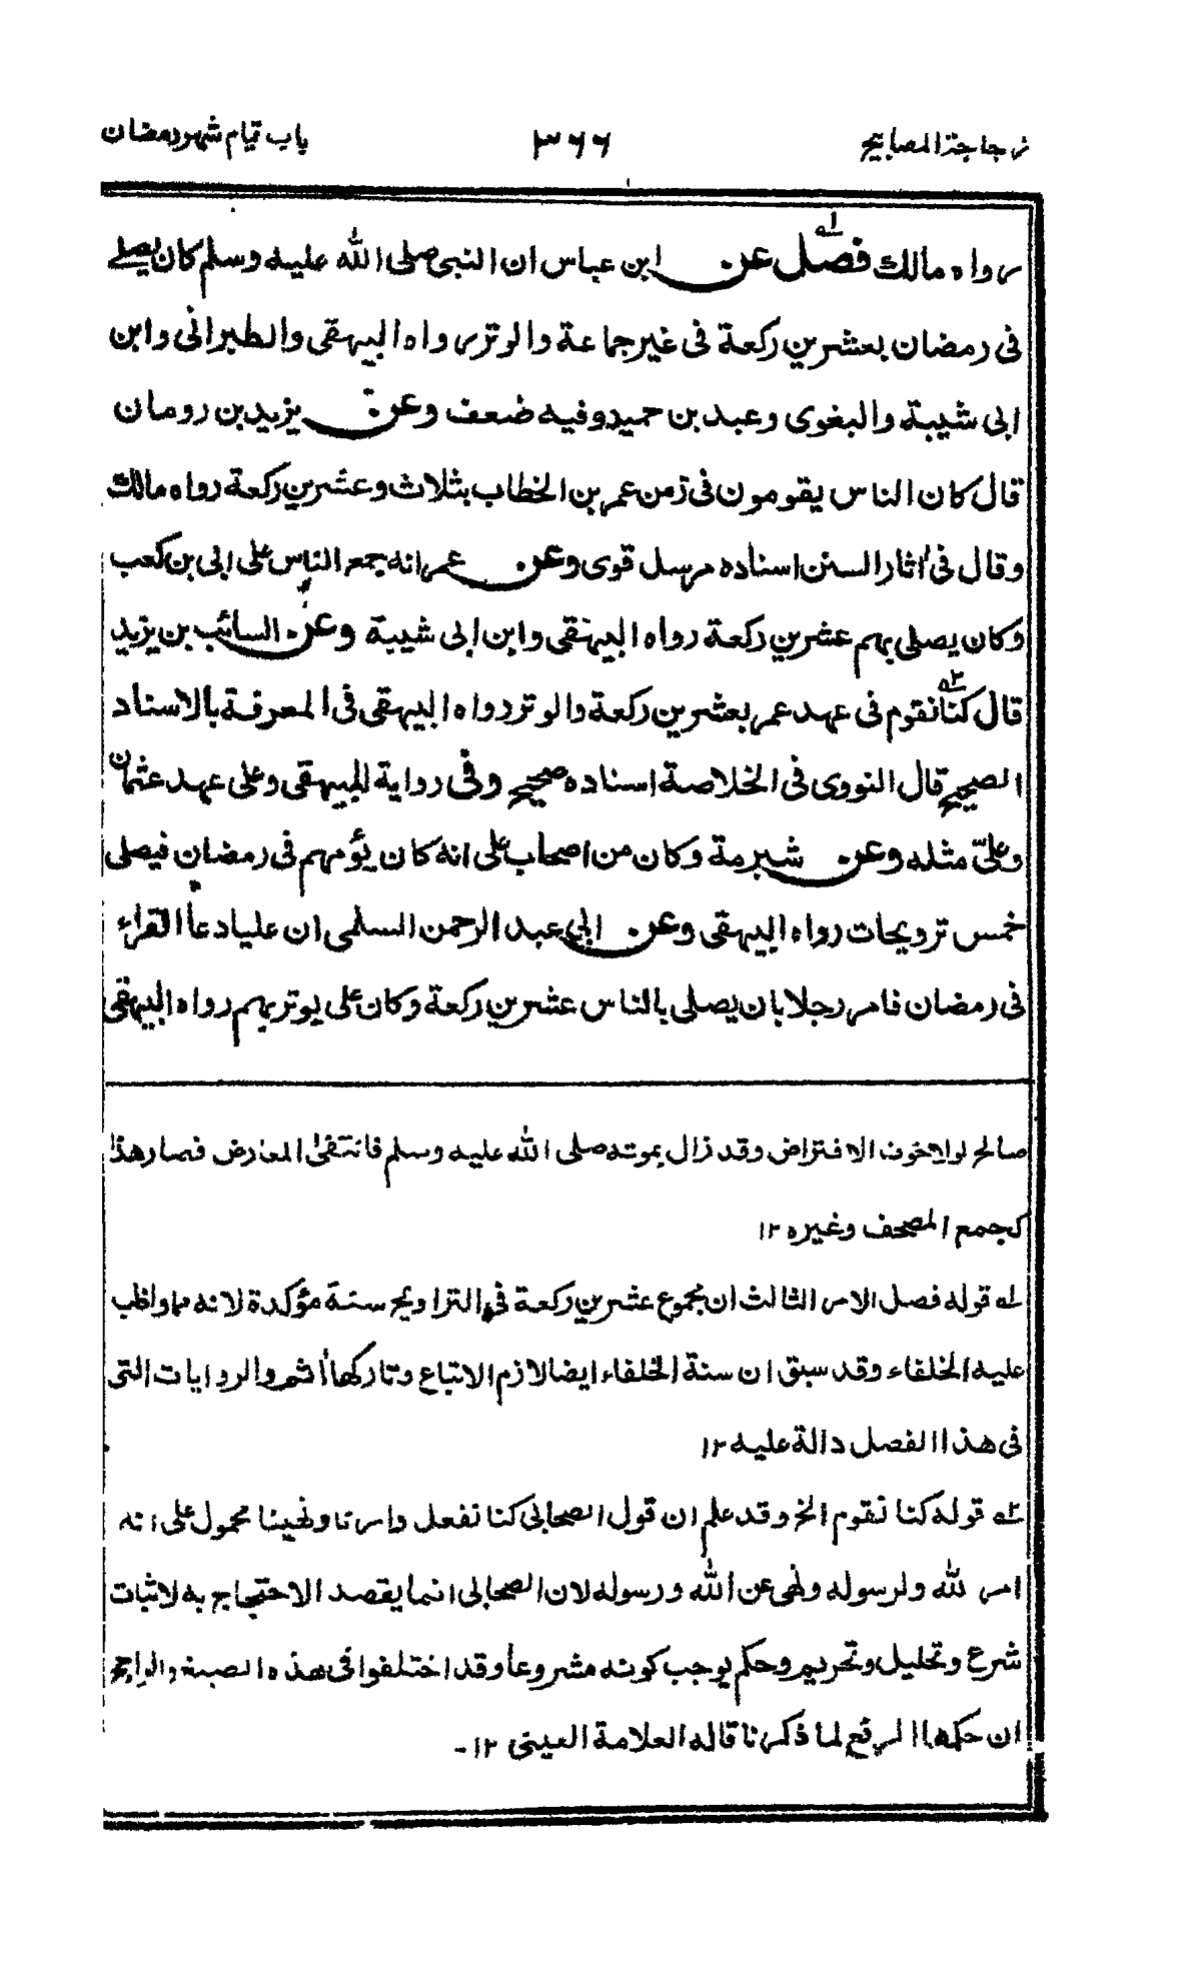 زجاجة المصابيح ٣٦٦ باب قيام شهر رمضان
رواه مالك فصل له عن ابن عباس ان النبى صلى الله عليه وسلم كان يصلے
فى رمضان بعشرين ركعة فى غير جماعة والوتر رواه البيهقى والطبرانى وابن
ابى شيبة والبغوى وعبد بن حميد وفيه ضعف وعن يزيد بن رومان
قال كان الناس يقومون فى زمن عمر بن الخطاب بثلاث وعشرين ركعة رواه مالك
وقال فى اٰثار السنن اسناده مرسل قوى وعن عمر انه جمع الناس على ابى بن كعب
وكان يصلى بهم عشرين ركعة رواه البيهقى وابن ابى شيبة وعن السائب بن يزيد
قال كنا ٢ه نقوم فى عهد عمر بعشرين ركعة والوتر رواه البيهقى فى المعرفة بالاسناد
الصحيح قال النووى فى الخلاصة اسناده صحيح وفى رواية للبيهقى وعلى عهد عثمان
وعلىّ مثله وعن شبرمة وكان من اصحاب على انه كان يؤمهم فى رمضان فيصلى
خمس ترويحات رواه البيهقى وعن ابى عبد الرحمن السلمى ان عليا دعا القراء
فى رمضان فامر رجلا بان يصلى بالناس عشرين ركعة وكان على يوتر بهم رواه البيهقى
صالح لولا خوف الافتراض وقد زال بموته صلى الله عليه وسلم فانتفىٰ المعارض فصار هذا
كجمع المصحف وغيره ١٢
له قوله فصل الامر الثالث ان مجموع عشرين ركعة فى التراويح سنة مؤكدة لانه مما واظب
عليه الخلفاء وقد سبق ان سنة الخلفاء ايضا لازم الاتباع وتاركها اٰثم والروايات التى
فى هذا الفصل دالة عليه ١٢
٢ه قوله كنا نقوم الخ وقد علم ان قول الصحابى كنا نفعل وامرنا ونهينا محمول على انه
امر لله ولرسوله ونهى عن الله ورسوله لان الصحابى انما يقصد الاحتجاج به لاثبات
شرع وتحليل وتحريم وحكم يوجب كونه مشروعا وقد اختلفوا فى هذه الصيغة والراجح
ان حكمها الرفع لما ذكرنا قاله العلامة العينى ١٢-